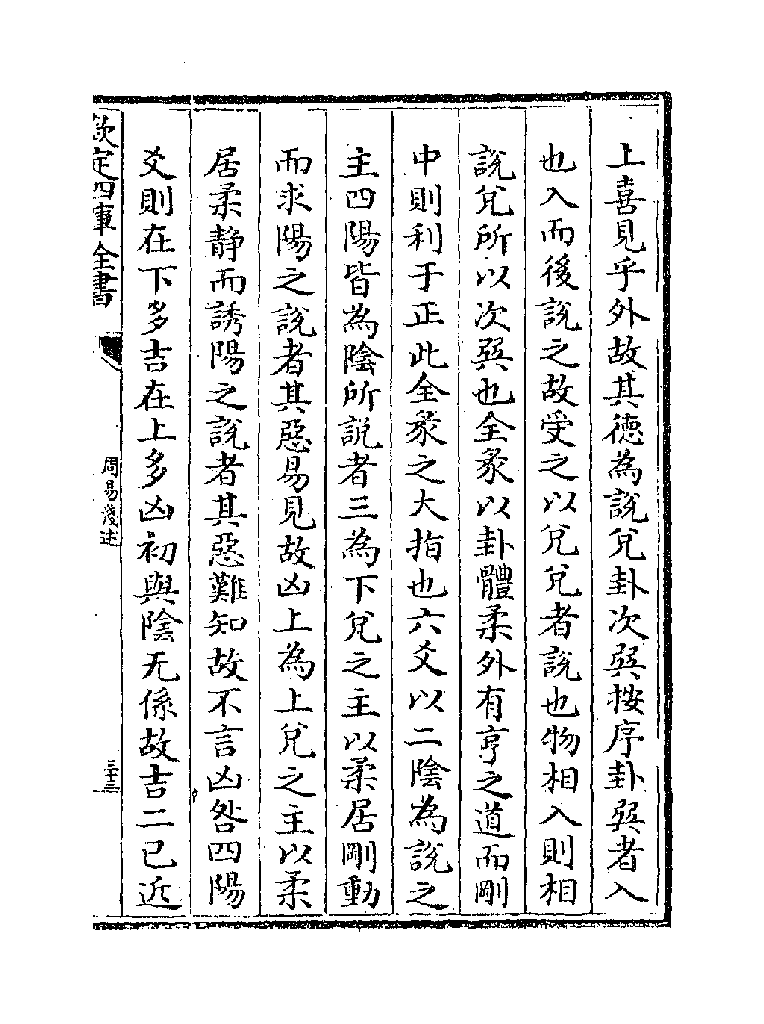 上喜見乎外故其德為說兌卦次巽按序卦巽者入
也入而後說之故受之以兌兌者說也物相入則相
說兌所以次巽也全彖以卦體柔外有亨之道而剛
中則利于正此全彖之大指也六爻以二陰為說之
主四陽皆為陰所說者三為下兌之主以柔居剛動
而求陽之說者其惡易見故凶上為上兌之主以柔
居柔靜而誘陽之說者其惡難知故不言凶咎四陽
爻則在下多吉在上多凶初與陰无係故吉二已近
欽定四庫全書
周易淺述
三十三